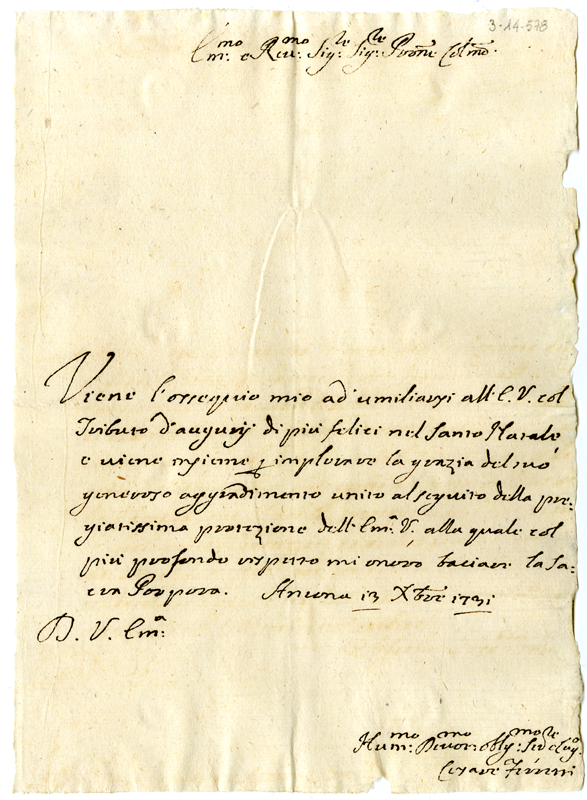 3-14-578
Em:mo e Rev:mo Sig:re Sig:re Prone Colmo:
Viene l'ossequio mio ad umiliarsi all'E. V. col
Tributo d'augurj di più felici nel Santo Natale
e viene insieme p implorare la grazia del suo
generoso aggradimento unito al seguito della pre=
giatissima protezione dell'Em:a V. alla quale col
più profondo rispetto mi onoro baciare la Sa=
cra Porpora. Ancona 13 Xbre 1731
D. V. Em:a
Hum:mo Devot:mo Obblig:mo
Cesare